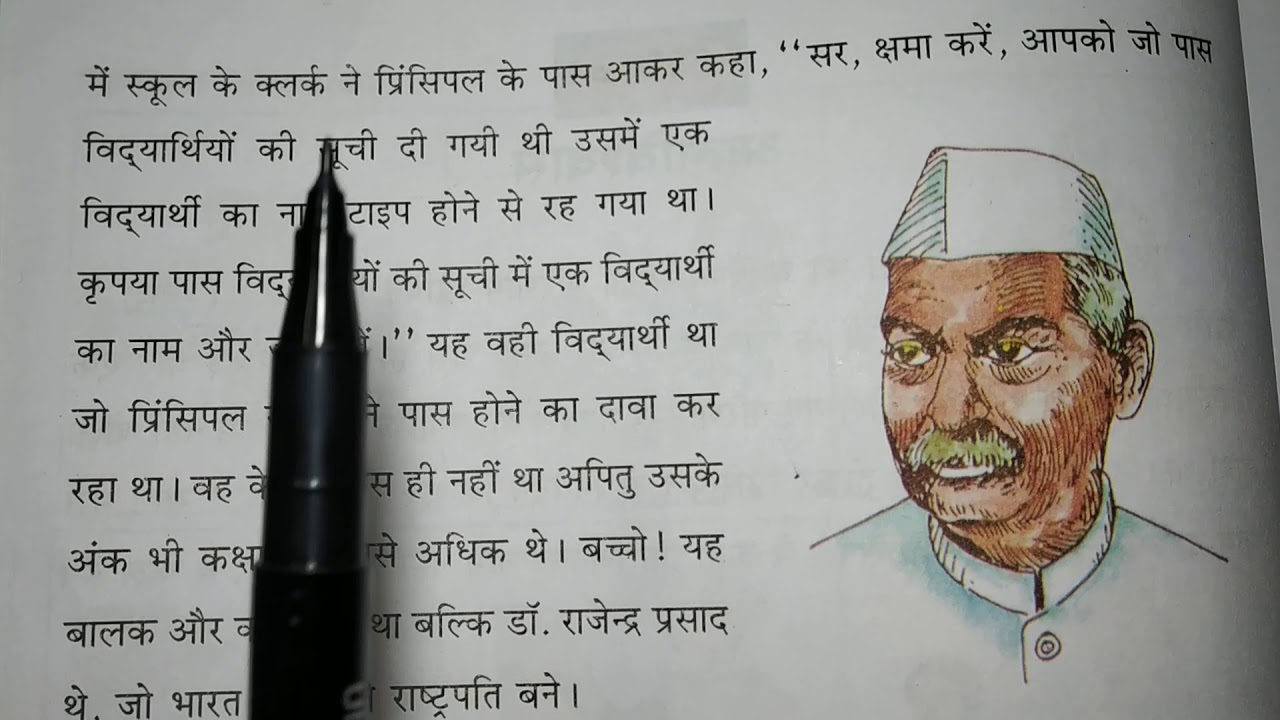 में स्कूल के क्लर्क ने प्रिंसिपल के पास आकर कहा, “सर, क्षमा करें, आपको जो पास
विद्यार्थियों की सूची दी गयी थी उसमें एक
विद्यार्थी का टाइप होने से रह गया था।
कृपया पास की सूची में एक विद्यार्थी
का नाम और यह वही विद्यार्थी था
जो प्रिंसिपल पास होने का दावा कर
रहा था। वह ही नहीं था अपितु उसके
अंक भी से अधिक थे। बच्चो! यह
बालक और था बल्कि डॉ. राजेन्द्र प्रसाद
थे, जो भारत राष्ट्रपति बने।